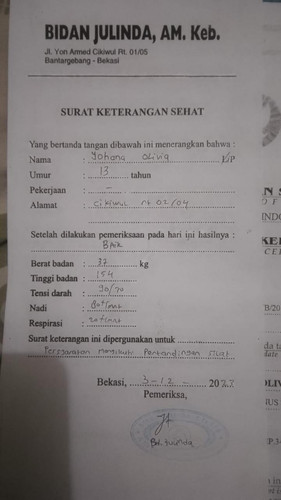 BIDAN JULINDA, AM. Keb.
Jl. Yon Armed Cikiwul Rt. 01/05
Bantargebang - Bekasi
SURAT KETERANGAN SEHAT
Yang bertanda tangan dibawah ini menerangkan bahwa :
Nama : Yohana Olivia L/P
Umur : 13 tahun
Pekerjaan : -
Alamat : Cikiwul rt 02/04
Setelah dilakukan pemeriksaan pada hari ini hasilnya :
Baik
Berat badan : 37 kg
Tinggi badan : 154
Tensi darah : 90/70
Nadi :
Respirasi :
Surat keterangan ini dipergunakan untuk
Persyaratan mengikuti Pertandingan Silat
Bekasi, 3-12- 2022
Pemeriksa,
Bd. Julinda